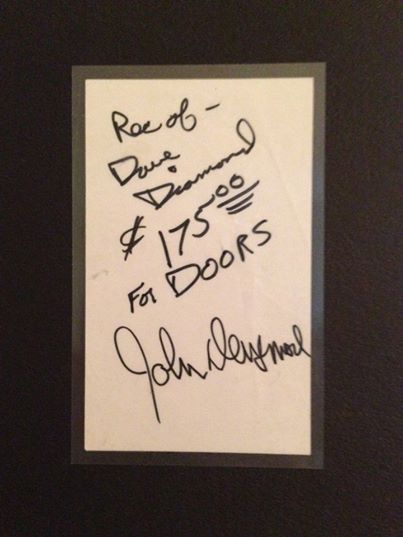 Rec of -
Dave
Diamond
$175.00
For DOORS
John Densmore